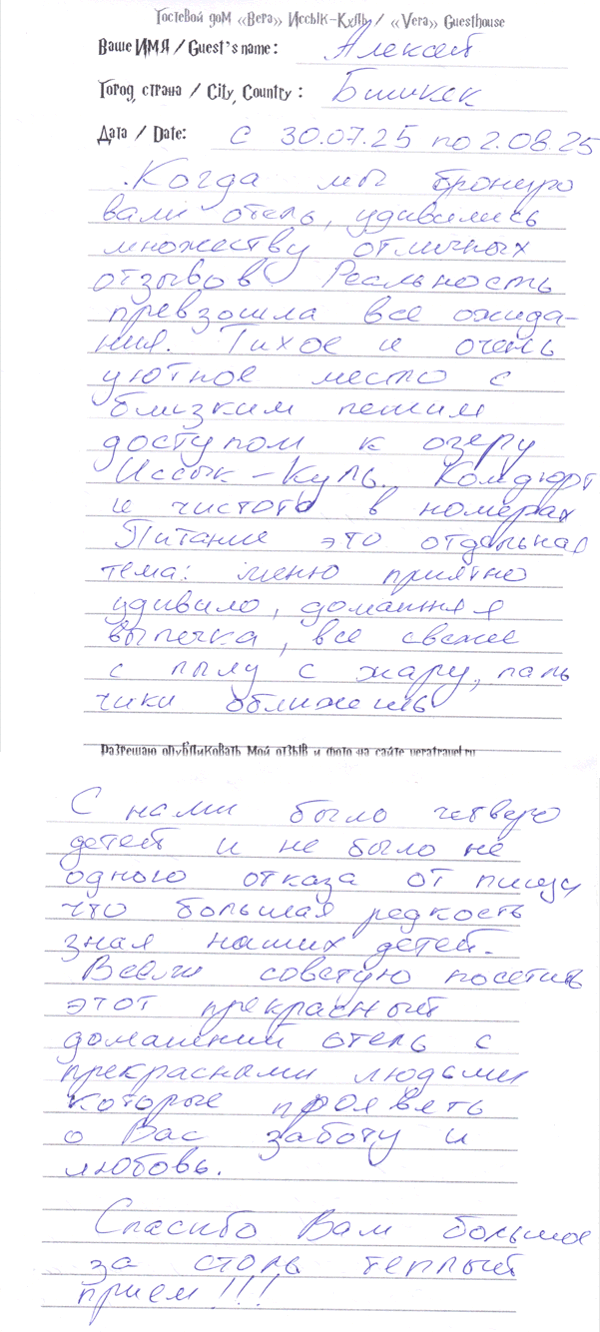 Гостевой дом «Вера» Иссык-Куль / «Vera» Guesthouse
Ваше ИМЯ / Guest's name: Алексей
Город, страна / City, Country: Бишкек
Дата / Date: с 30.07.25 по 2.08.25
Когда мы брониро
вали отель, удивились
множеству отличных
отзывов Реальность
превзошла все ожида-
ния. Тихое и очень
уютное место с
близким пешим
доступом к озеру
Иссык-Куль. Комфорт
и чистота в номерах
Питание это отдельная
тема: меню приятно
удивило, домашняя
выпечка, все свежее
с пылу с жару, паль
чики оближешь
Разрешаю опубликовать мой отзыв и фото на сайте veratravel.ru
С нами было четверо
детей и не было не
одного отказа от пищи
что большая редкость
зная наших детей.
Всем советую посетить
этот прекрасный
домашний отель с
прекрасными людьми
которые проявять
о Вас заботу и
любовь.
Спасибо Вам большое
за столь теплый
прием!!!